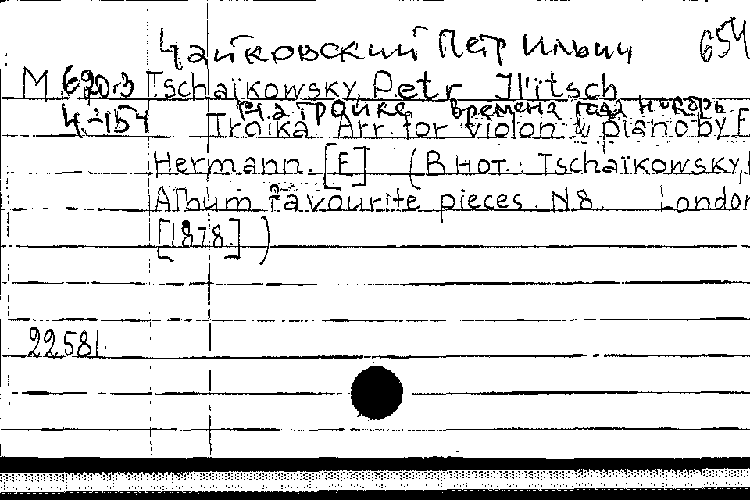 Чайковский Петр Ильич 654
М 620.3 Tschaïkowsky, Petr Il'itsch
Ч-154 На тройке времена года ноябрь
Troika Arr for violon & piano by F
Hermann. [E] (В нот: Tschaïkowsky,
Album favourite pieces N8. London
[1878.] )
22581